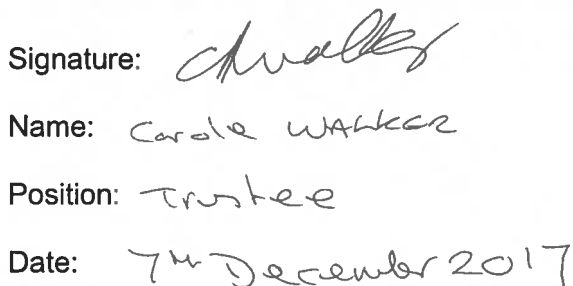 Signature: CAWalker
Name: Carole WALKER
Position: Trustee
Date: 7th December 2017